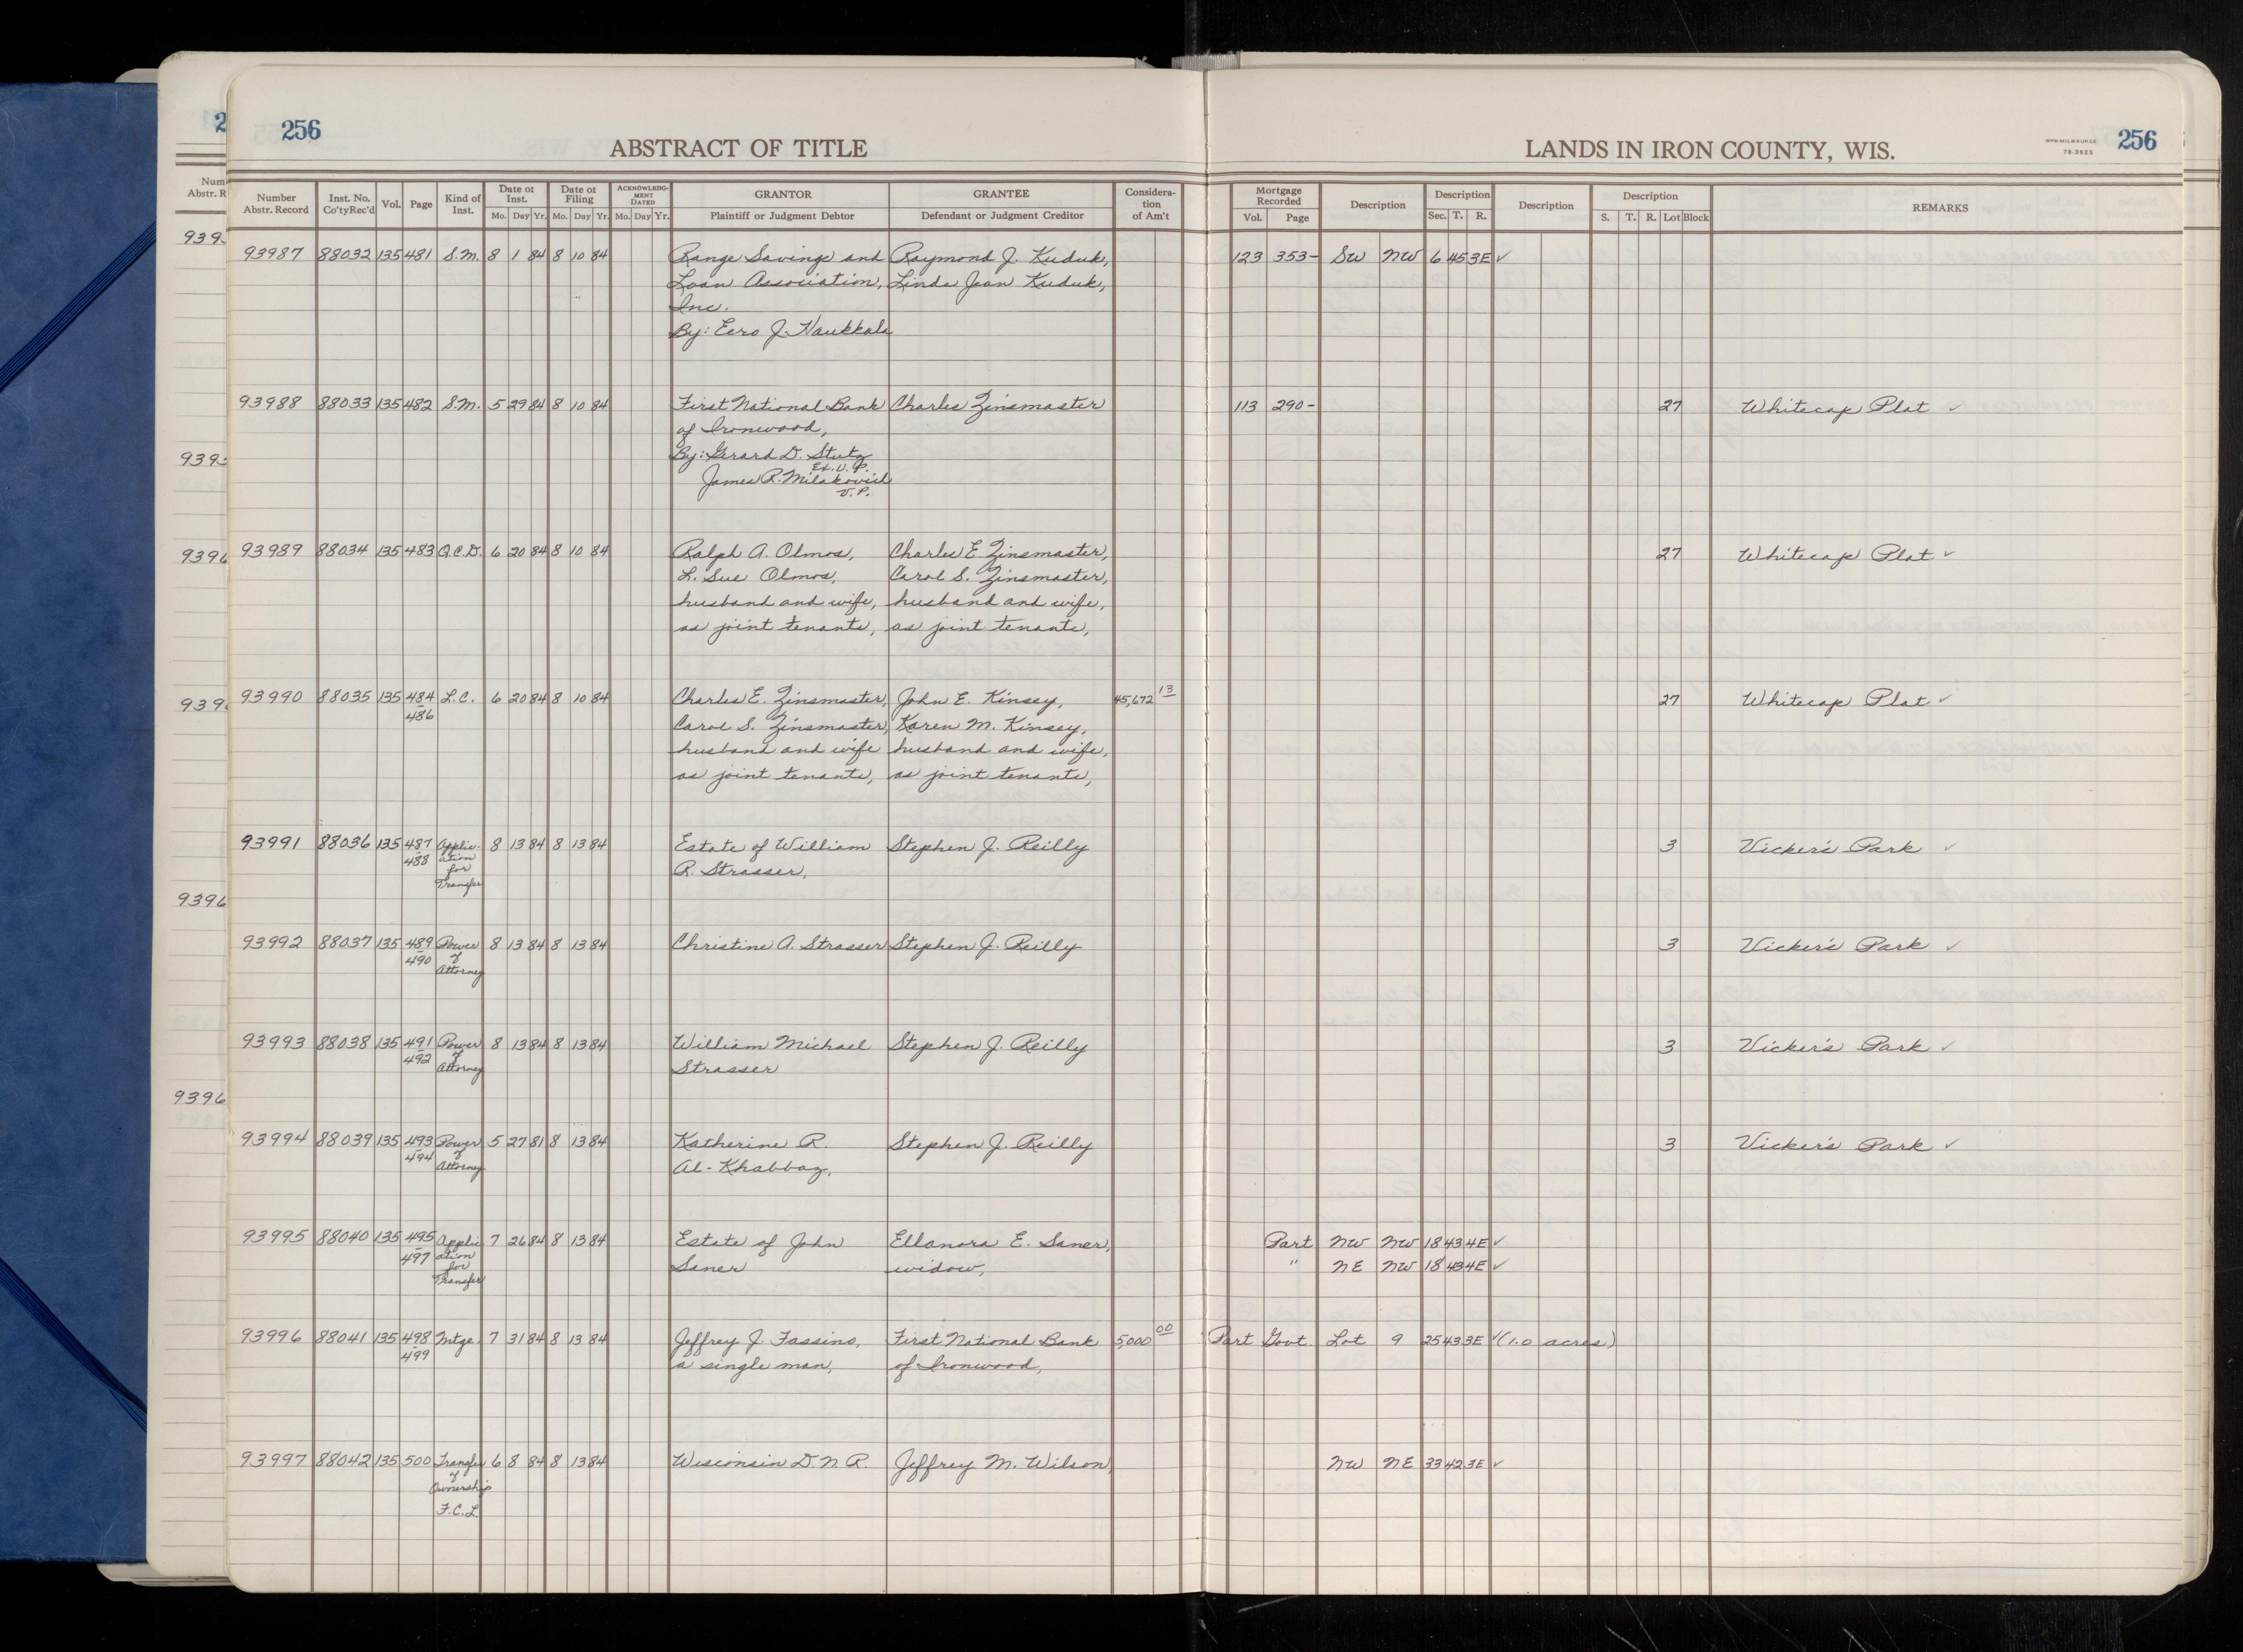 256
ABSTRACT OF TITLE
LANDS IN IRON COUNTY, WIS.
WPB-MILWAUKEE
78-3525
256
Number Abstr. Record Inst. No. Co'ty Rec'd Vol. Page Kind of Inst. Date of Inst. Mo. Day Yr. Date of Filing Mo. Day Yr. ACKNOWLEDGMENT DATED Mo. Day Yr. GRANTOR Plaintiff or Judgment Debtor GRANTEE Defendant or Judgment Creditor Consideration of Am't Mortgage Recorded Vol. Page Description Description Sec. T. R. Description Description S. T. R. Lot Block REMARKS
93987 88032 135 481 S.M. 8 1 84 8 10 84 Range Savings and Raymond J. Kuduk, 123 353- SW NW 6 45 3E ✓
Loan Association, Linda Jean Kuduk,
Inc.
By: Eero J. Haukkala
93988 88033 135 482 S.M. 5 29 84 8 10 84 First National Bank Charles Zinsmaster 113 290- 27 Whitecap Plat ✓
of Ironwood,
By: Gerard D. Stutz
Ex. V. P.
James R. Milakovich
V. P.
93989 88034 135 483 Q.C.D. 6 20 84 8 10 84 Ralph A. Olmos, Charles E. Zinsmaster, 27 Whitecap Plat ✓
L. Sue Olmos, Carol S. Zinsmaster,
husband and wife, husband and wife,
as joint tenants, as joint tenants,
93990 88035 135 484 L.C. 6 20 84 8 10 84 Charles E. Zinsmaster, John E. Kinsey, 45,672 13 27 Whitecap Plat ✓
486 Carol S. Zinsmaster, Karen M. Kinsey,
husband and wife husband and wife,
as joint tenants, as joint tenants,
93991 88036 135 487 Applic- 8 13 84 8 13 84 Estate of William Stephen J. Reilly 3 Vicker's Park ✓
488 ation
for R. Strasser,
Transfer
93992 88037 135 489 Power 8 13 84 8 13 84 Christine A. Strasser Stephen J. Reilly 3 Vicker's Park ✓
490 of
Attorney
93993 88038 135 491 Power 8 13 84 8 13 84 William Michael Stephen J. Reilly 3 Vicker's Park ✓
492 of
Attorney Strasser
93994 88039 135 493 Power 5 27 81 8 13 84 Katherine R. Stephen J. Reilly 3 Vicker's Park ✓
494 of
Attorney Al-Khabbaz,
93995 88040 135 495 Applic 7 26 84 8 13 84 Estate of John Ellanora E. Saner, Part NW NW 18 43 4E ✓
497 ation
for Saner widow, " NE NW 18 43 4E ✓
Transfer
93996 88041 135 498 Mtge. 7 31 84 8 13 84 Jeffrey J. Fassino, First National Bank 5,000 00 Part Govt. Lot 9 25 43 3E ✓ (1.0 acres)
499 a single man, of Ironwood,
93997 88042 135 500 Transfer 6 8 84 8 13 84 Wisconsin D.N.R. Jeffrey M. Wilson, NW NE 33 42 3E ✓
of
Ownership
F.C.L.